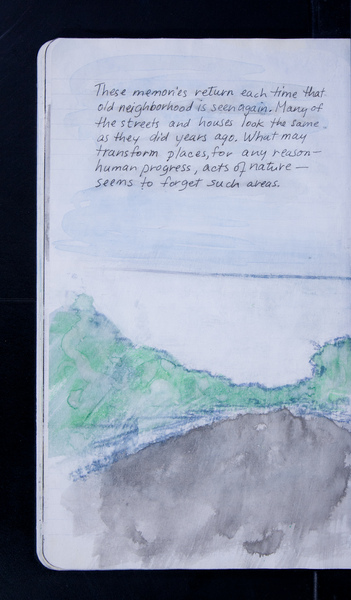 These memories return each time that
old neighborhood is seen again. Many of
the streets and houses look the same
as they did years ago. What may
transform places, for any reason—
human progress, acts of nature—
seems to forget such areas.